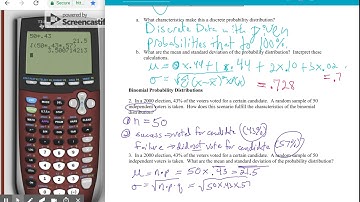 powered by
Screencastify
50*.43
21.5
√(50*.43*.57)
3.500714213
a. What characteristics make this a discrete probability distribution?
Discrete Data with given
probabilities that to 100%.
b. What are the mean and standard deviation of the probability distribution? Interpret these
calculations.
= .7
= .728
Binomial Probability Distributions
2. In a 2000 election, 43% of the voters voted for a certain candidate. A random sample of 50
independent voters is taken. How does this scenario fulfill the characteristics of the binomial
distribution?
① n = 50
② success → voted for candidate (43%)
failure → didn't vote for candidate (57%)
3. In a 2000 election, 43% of the voters voted for a certain candidate. A random sample of 50
independent voters is taken. What are the mean and standard deviation?
μ = n·p = 50 × .43 = 21.5
σ = √n·p·q = √50×.43×.57